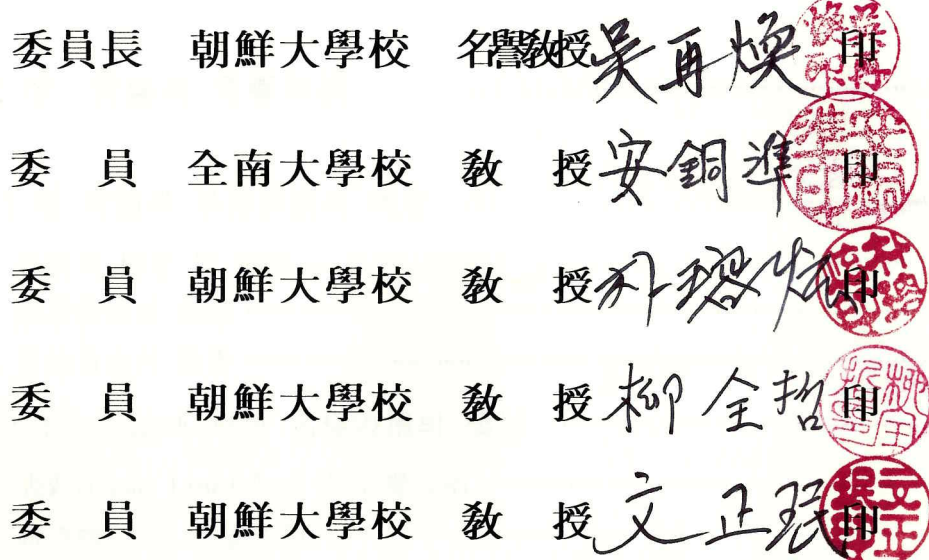 委員長 朝鮮大學校 名譽敎授 吳再煥 印
委員 全南大學校 敎授 安銅準 印
委員 朝鮮大學校 敎授 朴 炫 印
委員 朝鮮大學校 敎授 柳全哲 印
委員 朝鮮大學校 敎授 文正珉 印